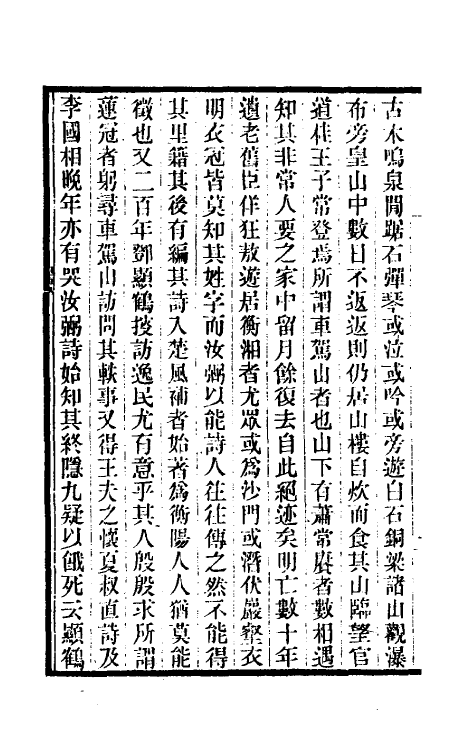 古木鳴泉閒踞石彈琴或泣或吟或旁遊白石銅梁諸山觀瀑
布旁皇山中數日不返返則仍居山樓自炊而食其山臨望官
道桂王子常登焉所謂車駕山者也山下有蕭常賡者數相遇
知其非常人要之家中留月餘復去自此絕迹矣明亡數十年
遺老舊臣佯狂敖遊居衡湘者尤眾或為沙門或潛伏巖壑衣
明衣冠皆莫知其姓字而汝弼以能詩人往往傳之然不能得
其里籍其後有編其詩入楚風補者始著為衡陽人人猶莫能
徵也又二百年鄧顯鶴搜訪逸民尤有意乎其人殷殷求所謂
蓮冠者躬尋車駕山訪問其軼事又得王夫之懷夏叔直詩及
李國相晚年亦有哭汝弼詩始知其終隱九疑以餓死云顯鶴